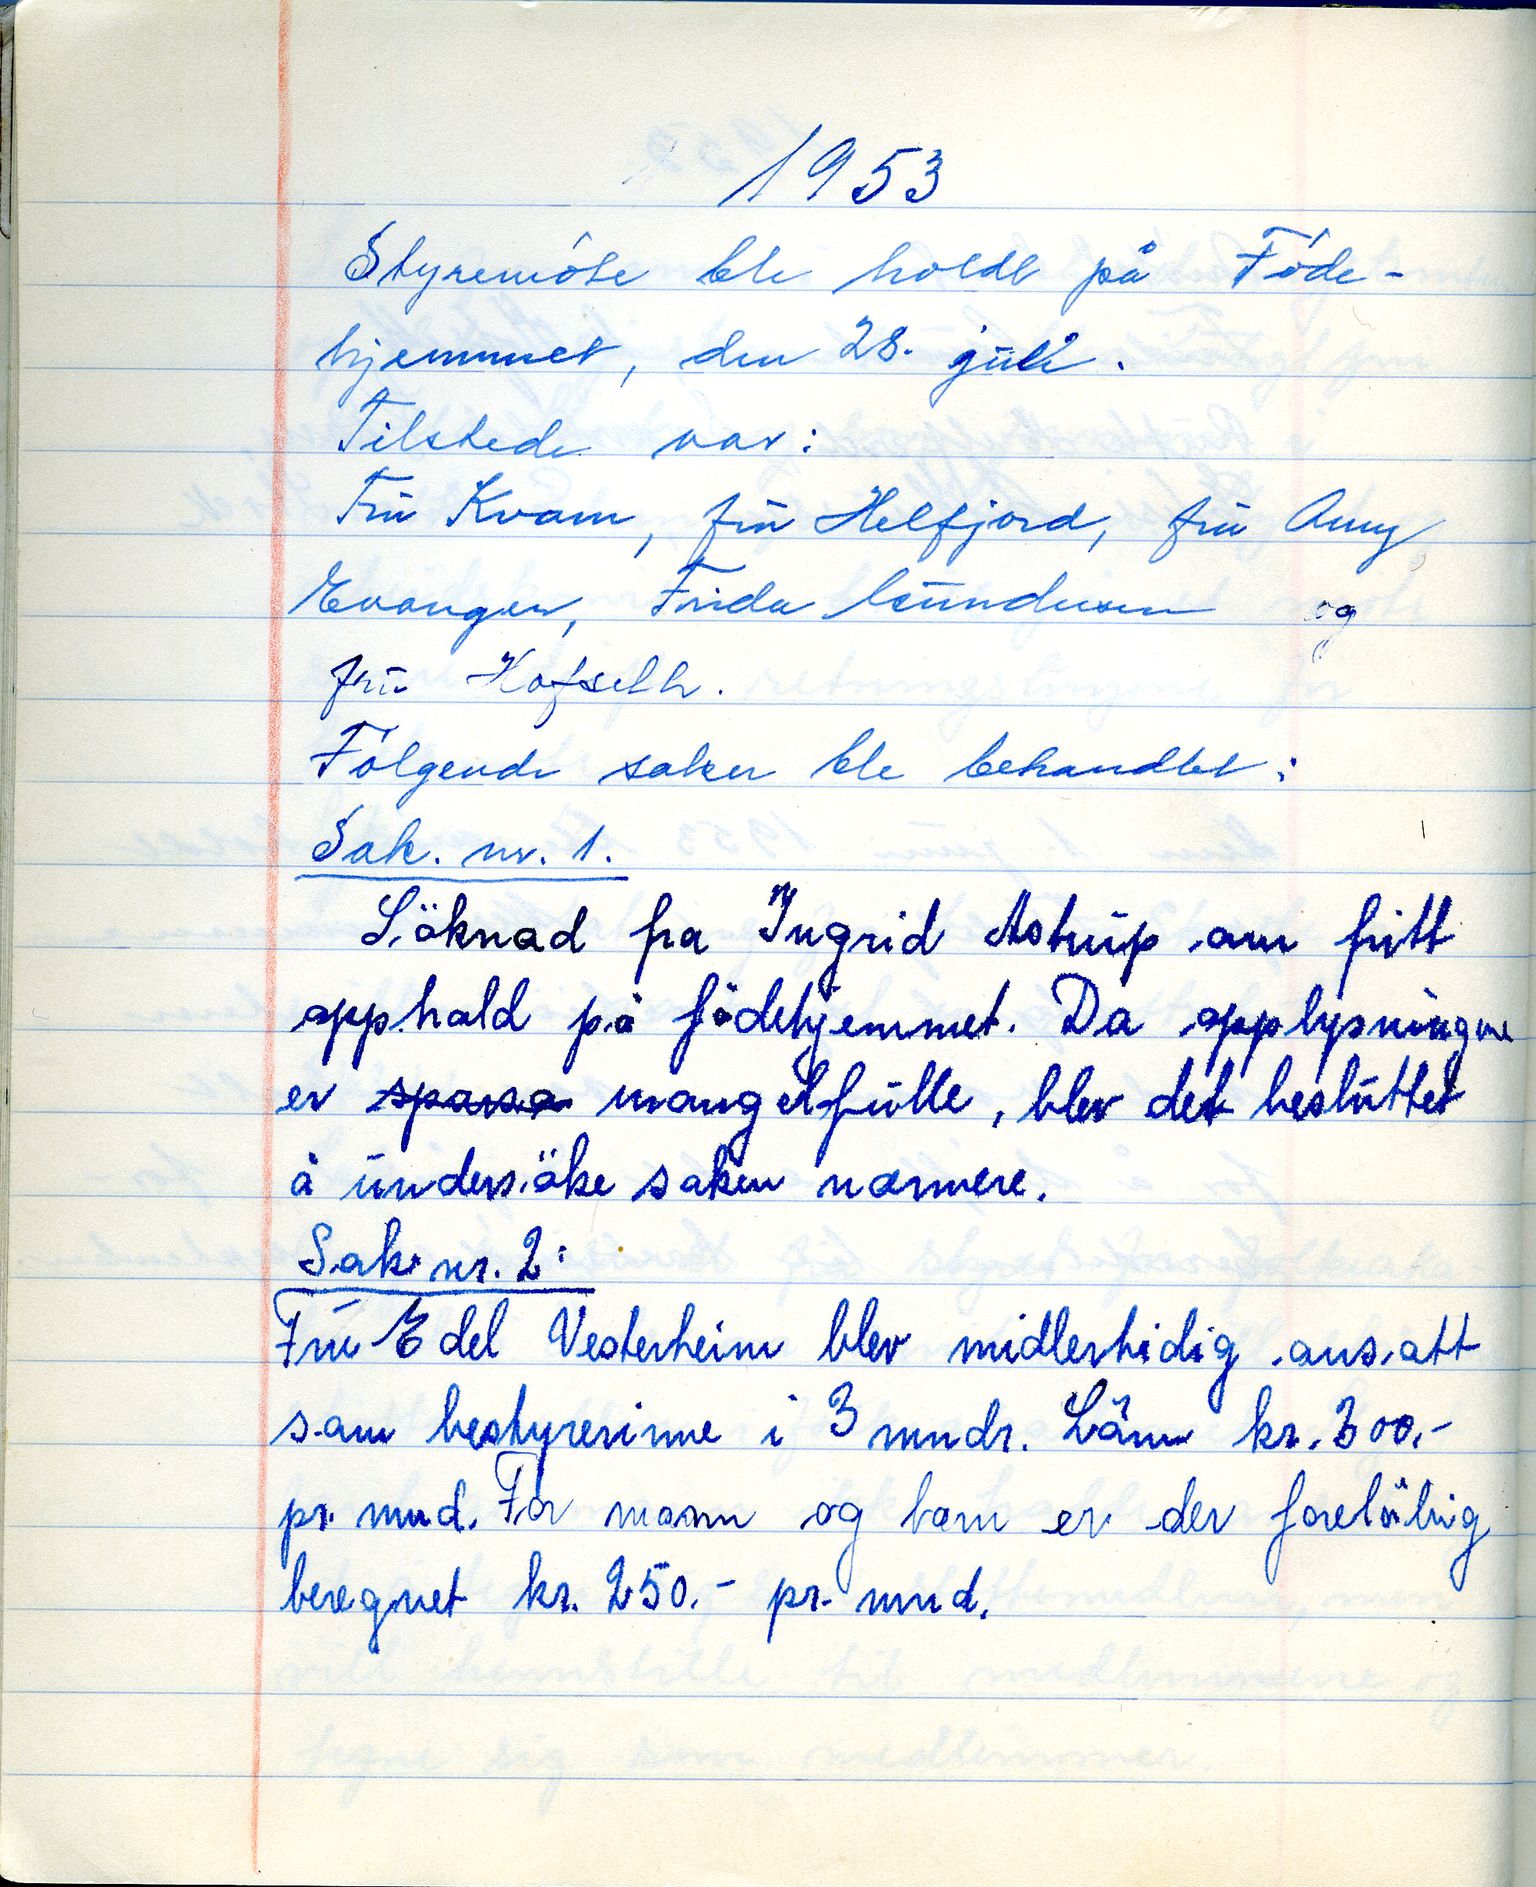 1953
Styremöte ble holdt på Föde-
hjemmet, den 28. juli.
Tilstede var:
Frú Kvam, frú Helfjord, frú Anny
Evanger, Frida Gúndersen og
frú Hofseth.
Fölgende saker ble behandlet:
Sak. nr. 1.
Söknad fra Ingrid Astrúp om fritt
opphold på födehjemmet. Da opplysningene
er mangelfúlle, blev det beslúttet
å úndersöke saken nærmere.
Sak nr. 2:
Frú Edel Vesterheim blev midlertidig ansatt
som bestyrerinne i 3 mndr. Lönn kr. 300.-
pr. mnd. For mann og barn er der forelöbig
beregnet kr. 250.- pr. mnd.